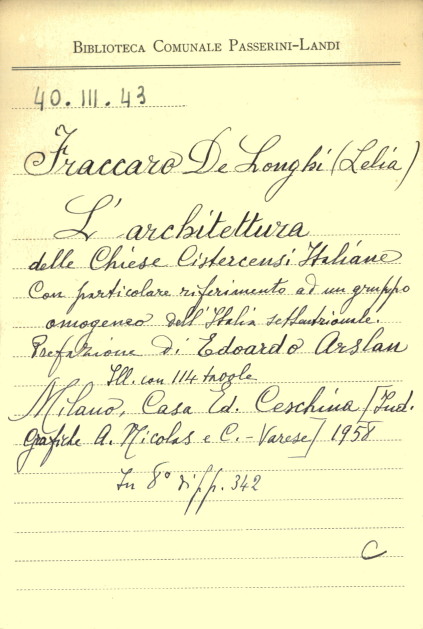 BIBLIOTECA COMUNALE PASSERINI-LANDI
40. III. 43
Fraccaro De Longhi (Lelia)
L'architettura
delle Chiese Cistercensi Italiane
Con particolare riferimento ad un gruppo
omogeneo dell'Italia settentrionale.
Prefazione di Edoardo Arslan
Ill. con 114 tavole
Milano, Casa Ed. Ceschina [Ind.
Grafiche A. Nicolas e C. - Varese] 1958
In 8° di pp. 342
C